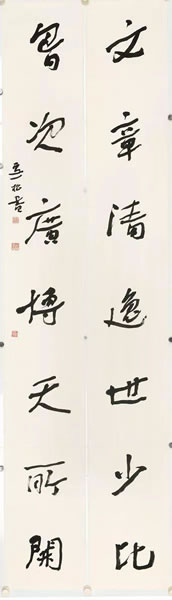 文章清逸世少比
胷次廣博天所開